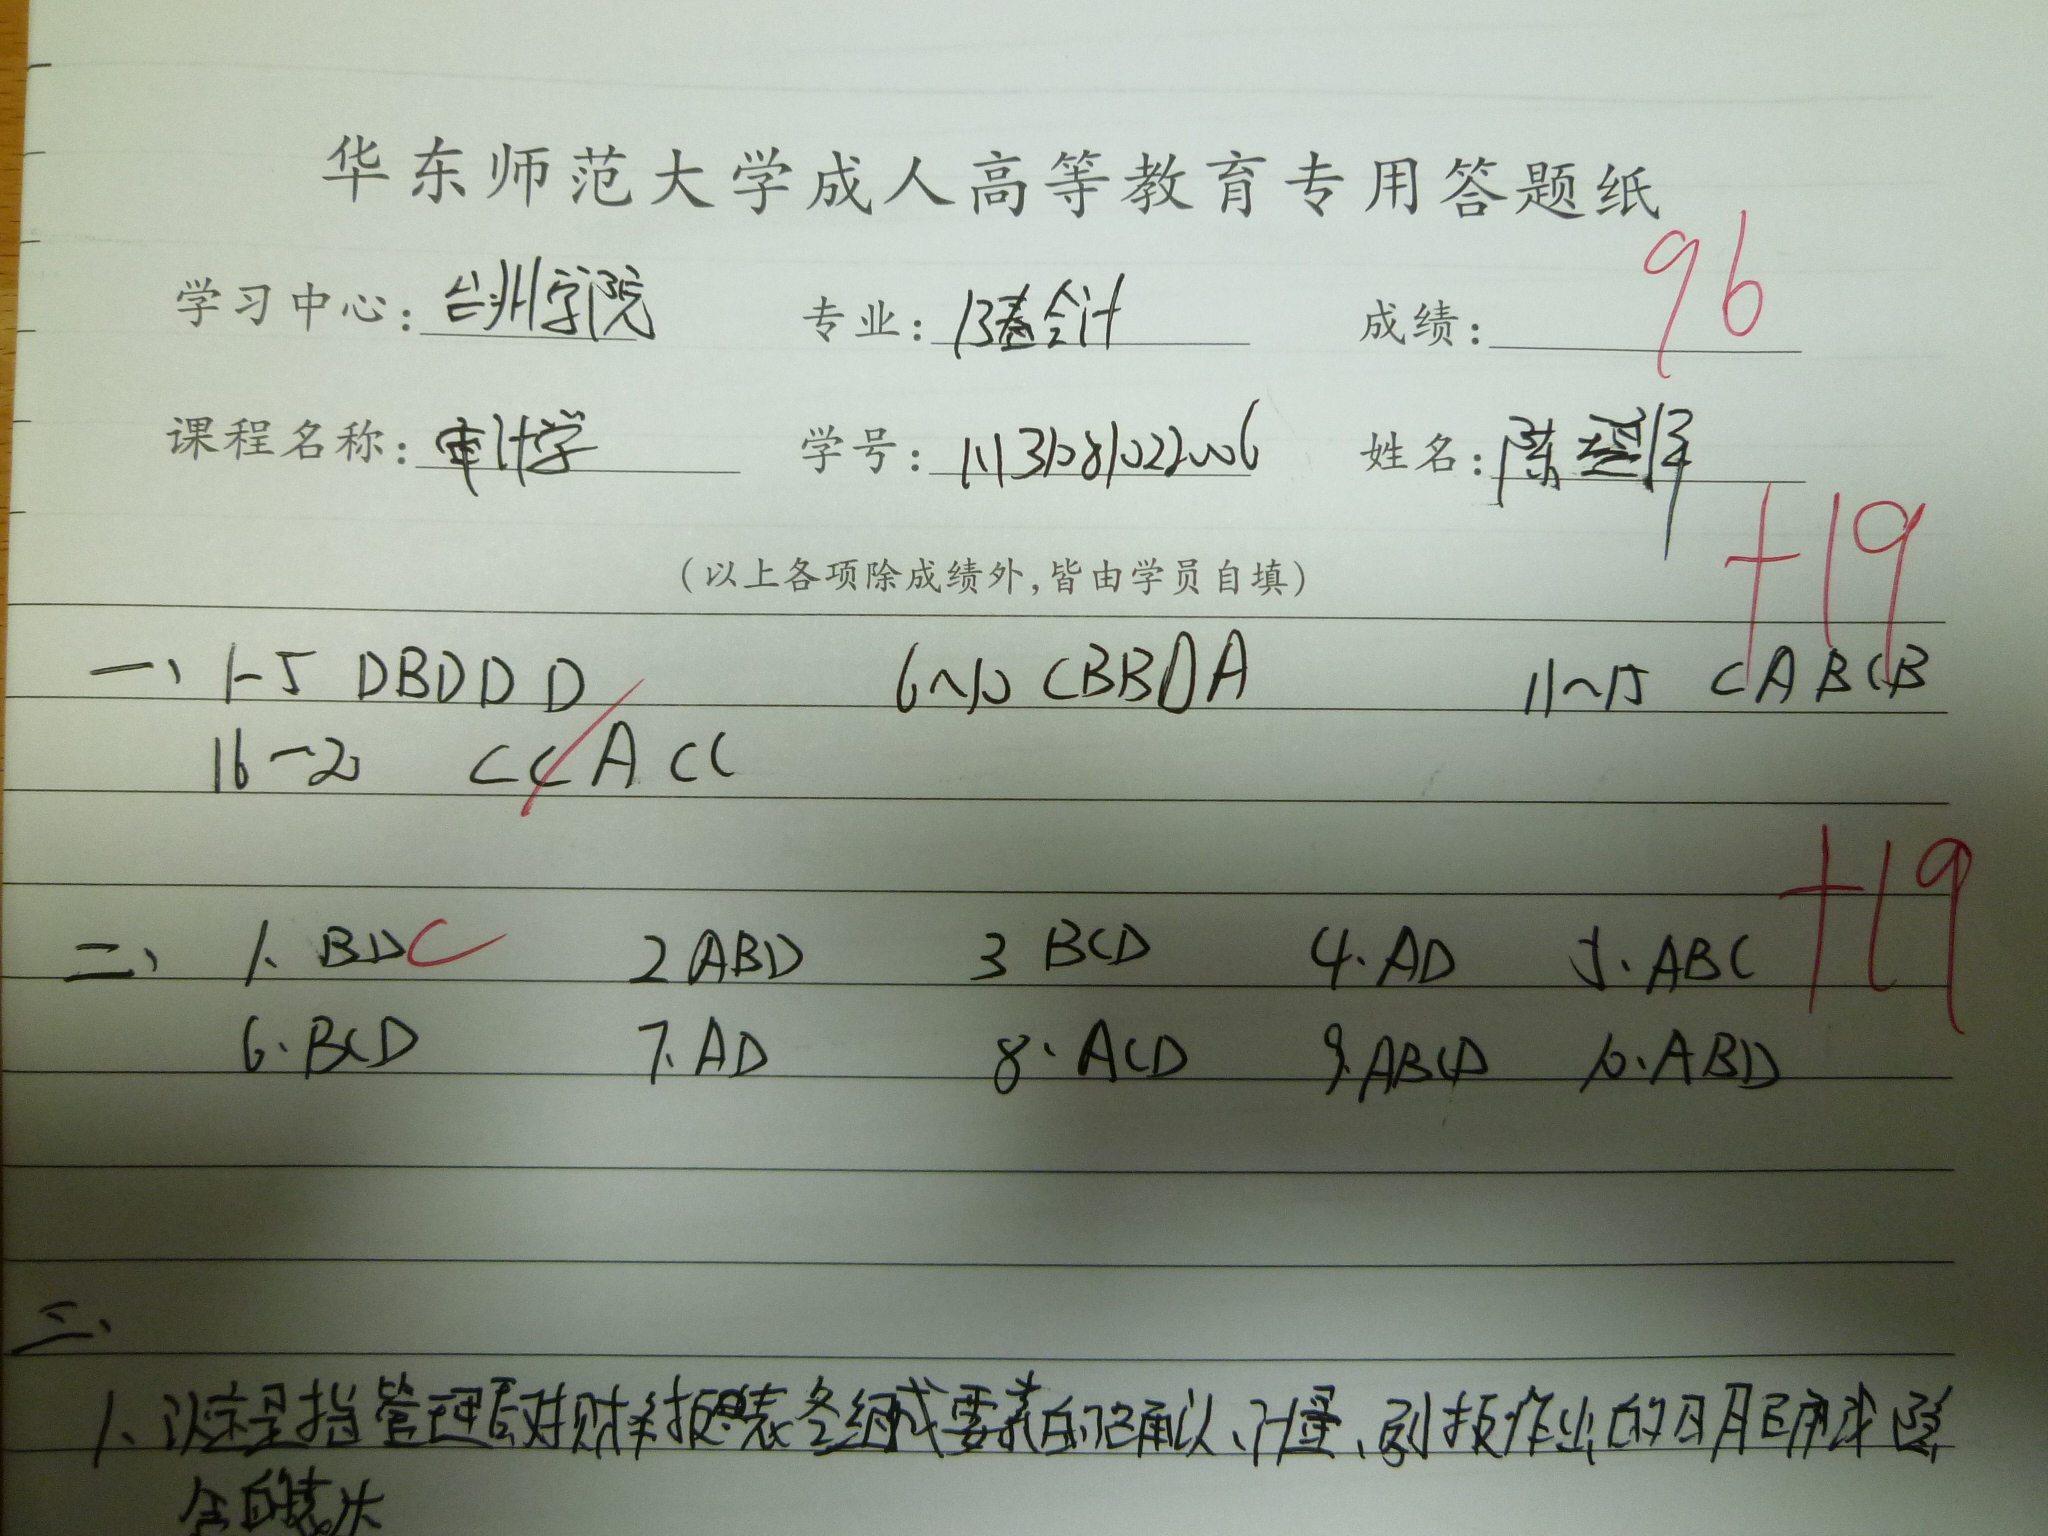 华东师范大学成人高等教育专用答题纸
学习中心：台州学院 专业：13春会计 成绩：96
课程名称：审计学 学号： 姓名：陈
（以上各项除成绩外，皆由学员自填）
+19
一、1-5 DBDDD 6~10 CBBDA 11~15 CABCB
16-20 CCACC
+19
二、1. BDC 2 ABD 3 BCD 4. AD 5. ABC
6. BCD 7. AD 8. ACD 9. ABCD 10. ABD
三、
1、认定是指管理层对财务报表各组成要素的确认、计量、列报作出的明确或隐
含的表达